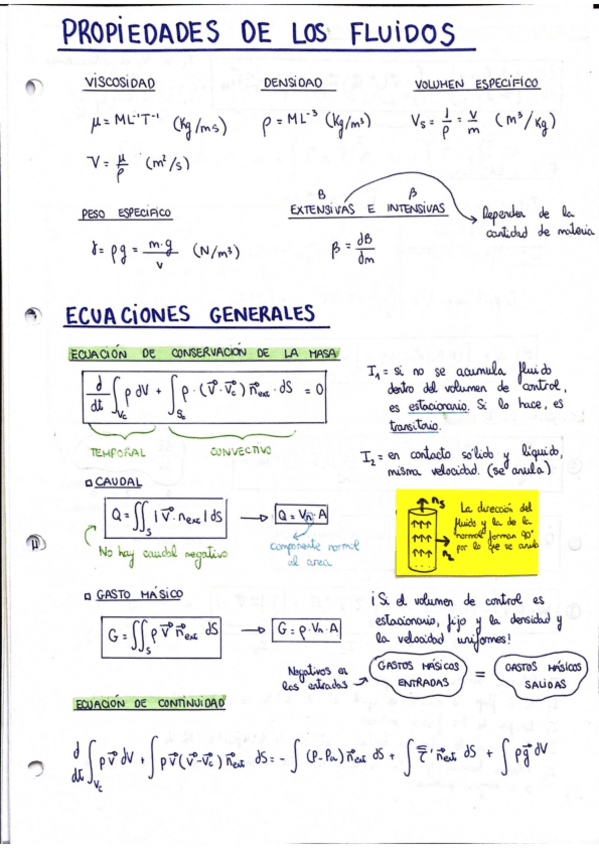 PROPIEDADES DE LOS FLUIDOS
VISCOSIDAD
μ = ML⁻¹T⁻¹ (Kg/ms)
ν = μ/ρ (m²/s)
DENSIDAD
ρ = ML⁻³ (Kg/m³)
VOLUMEN ESPECÍFICO
Vs = 1/ρ = V/m (m³/Kg)
PESO ESPECÍFICO
γ = ρg = m·g/V (N/m³)
B β
EXTENSIVAS E INTENSIVAS
β = dB/dm
Dependen de la
cantidad de materia
ECUACIONES GENERALES
ECUACIÓN DE CONSERVACIÓN DE LA MASA
d/dt ∫Vc ρ dV + ∫Sc ρ · (v⃗ - v⃗c) n⃗ext · dS = 0
TEMPORAL CONVECTIVO
I₁ = si no se acumula fluido
dentro del volumen de control,
es estacionario. Si lo hace, es
transitorio.
I₂ = en contacto sólido y líquido,
misma velocidad. (se anula)
CAUDAL
Q = ∬S |v⃗ · n⃗ext| dS → Q = Vn · A
No hay caudal negativo
componente normal
al area
nS
La dirección del
fluido y la de la
normal forman 90°
por lo que se anula
nL
GASTO MÁSICO
G = ∬S ρ v⃗ n⃗ext dS → G = ρ · Vn · A
¡Si el volumen de control es
estacionario, fijo y la densidad y
la velocidad uniformes!
Negativos en
las entradas → GASTOS MÁSICOS ENTRADAS = GASTOS MÁSICOS SALIDAS
ECUACIÓN DE CONTINUIDAD
d/dt ∫Vc ρv⃗ dV + ∫ ρv⃗ (v⃗ - v⃗c) n⃗ext dS = - ∫ (P - Pa) n⃗ext dS + ∫ τ̿' n⃗ext dS + ∫ ρg⃗ dV